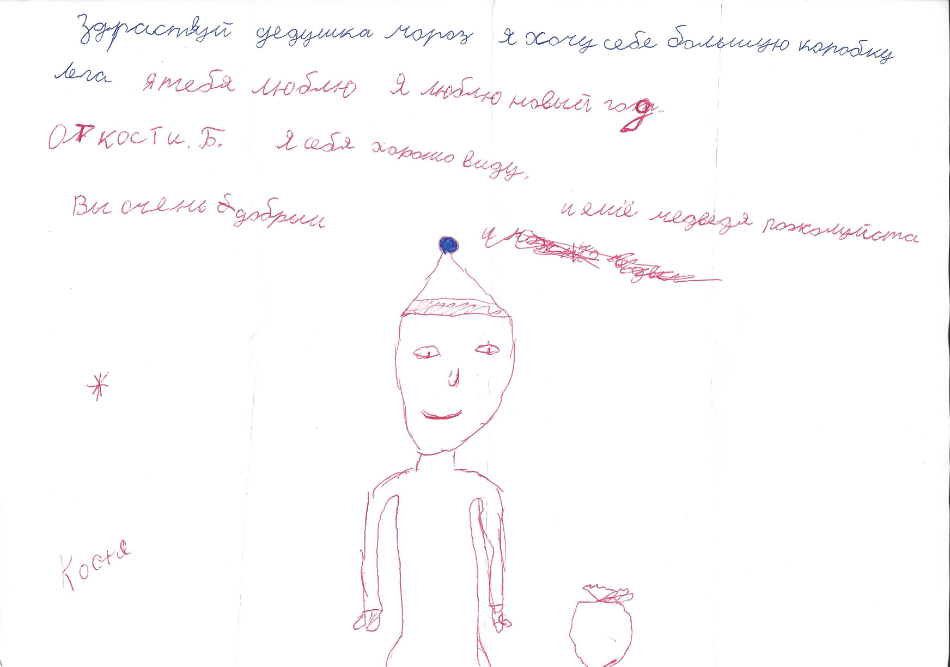 Здраствуй дедушка мороз я хочу себе большую коробку
лега я тебя люблю Я люблю новый год.
От кости. Б. Я себя хорошо виду.
Вы очень добрыи
и ещё медведя пожалуйста
Костя